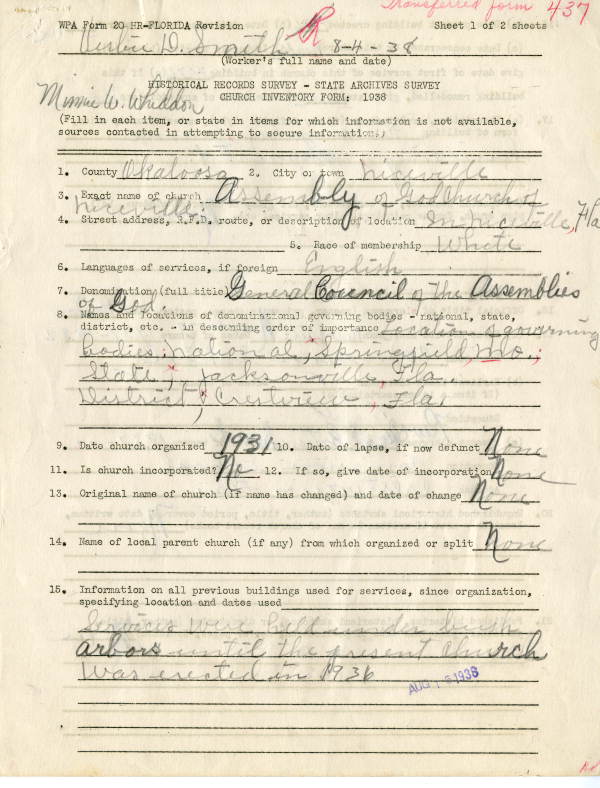 Transferred form 437
WPA Form 20 HR-FLORIDA Revision Sheet 1 of 2 sheets
D. Smith R 8-4-38
(Worker's full name and date)
HISTORICAL RECORDS SURVEY - STATE ARCHIVES SURVEY
CHURCH INVENTORY FORM: 1938
Minnie W. Whiddon
(Fill in each item, or state in items for which information is not available,
sources contacted in attempting to secure information.)
1. County Okaloosa 2. City or town Niceville
3. Exact name of church Assembly of God Church of
Niceville.
4. Street address, R.F.D. route, or description of location In Niceville, Fla
5. Race of membership White
6. Languages of services, if foreign English
7. Denomination (full title) General Council of the Assemblies
of God.
8. Names and locations of denominational governing bodies - national, state,
district, etc. - in descending order of importance Location of governing
bodies; National; Springfield, Mo.;
State; Jacksonville, Fla.
District; Crestview, Fla.
9. Date church organized 1931 10. Date of lapse, if now defunct None
11. Is church incorporated? No 12. If so, give date of incorporation None
13. Original name of church (If name has changed) and date of change None
14. Name of local parent church (if any) from which organized or split None
15. Information on all previous buildings used for services, since organization,
specifying location and dates used
Services were held under brush
arbors until the present church
was erected in 1936
AUG 1938